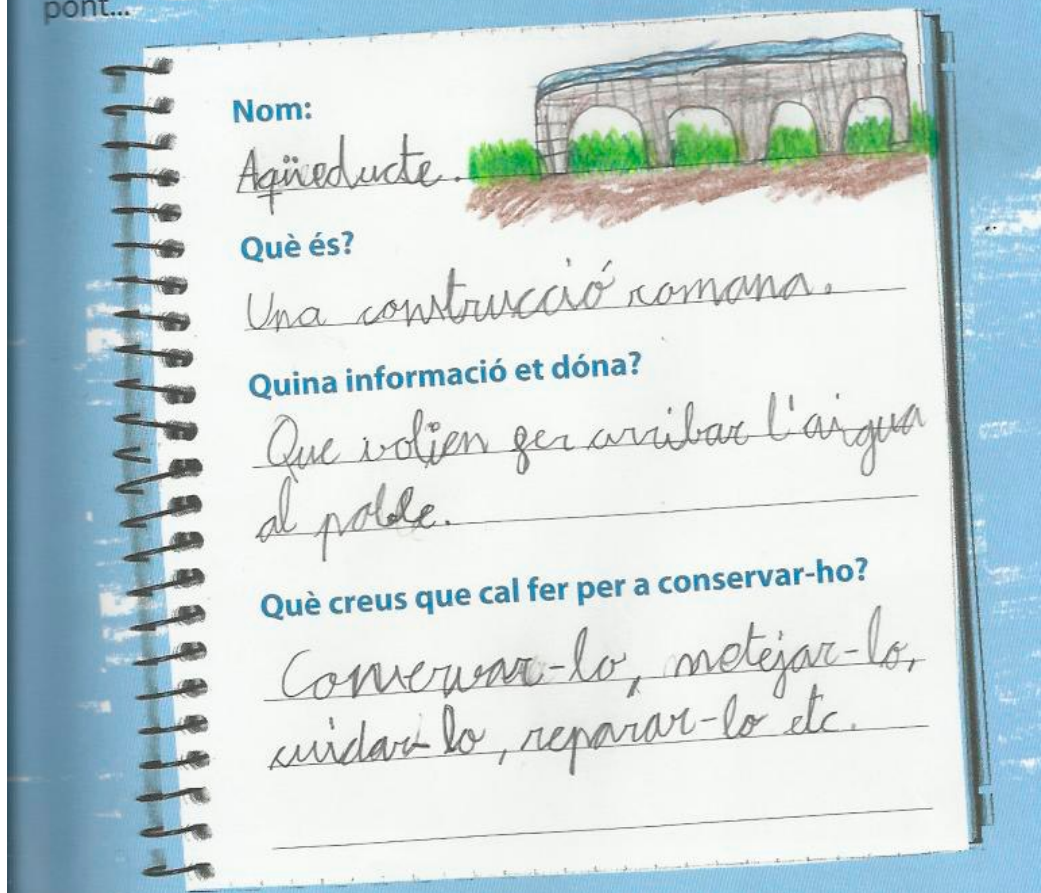 pont...
Nom:
Aqüeducte.
Què és?
Una construcció romana.
Quina informació et dóna?
Que volien fer arribar l'aigua
al poble.
Què creus que cal fer per a conservar-ho?
Conservar-lo, netejar-lo,
cuidar-lo, reparar-lo etc.